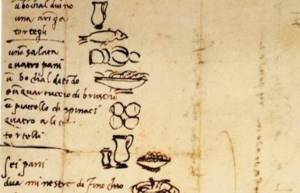 u bochal di vino
una aringa
tortegli
una salata
quatro pani
u bochal di tōdo
un quartuccio di bruscho
u piatello di spinaci
quatro alice
tortelli
sei pani
dua minestre di finochio